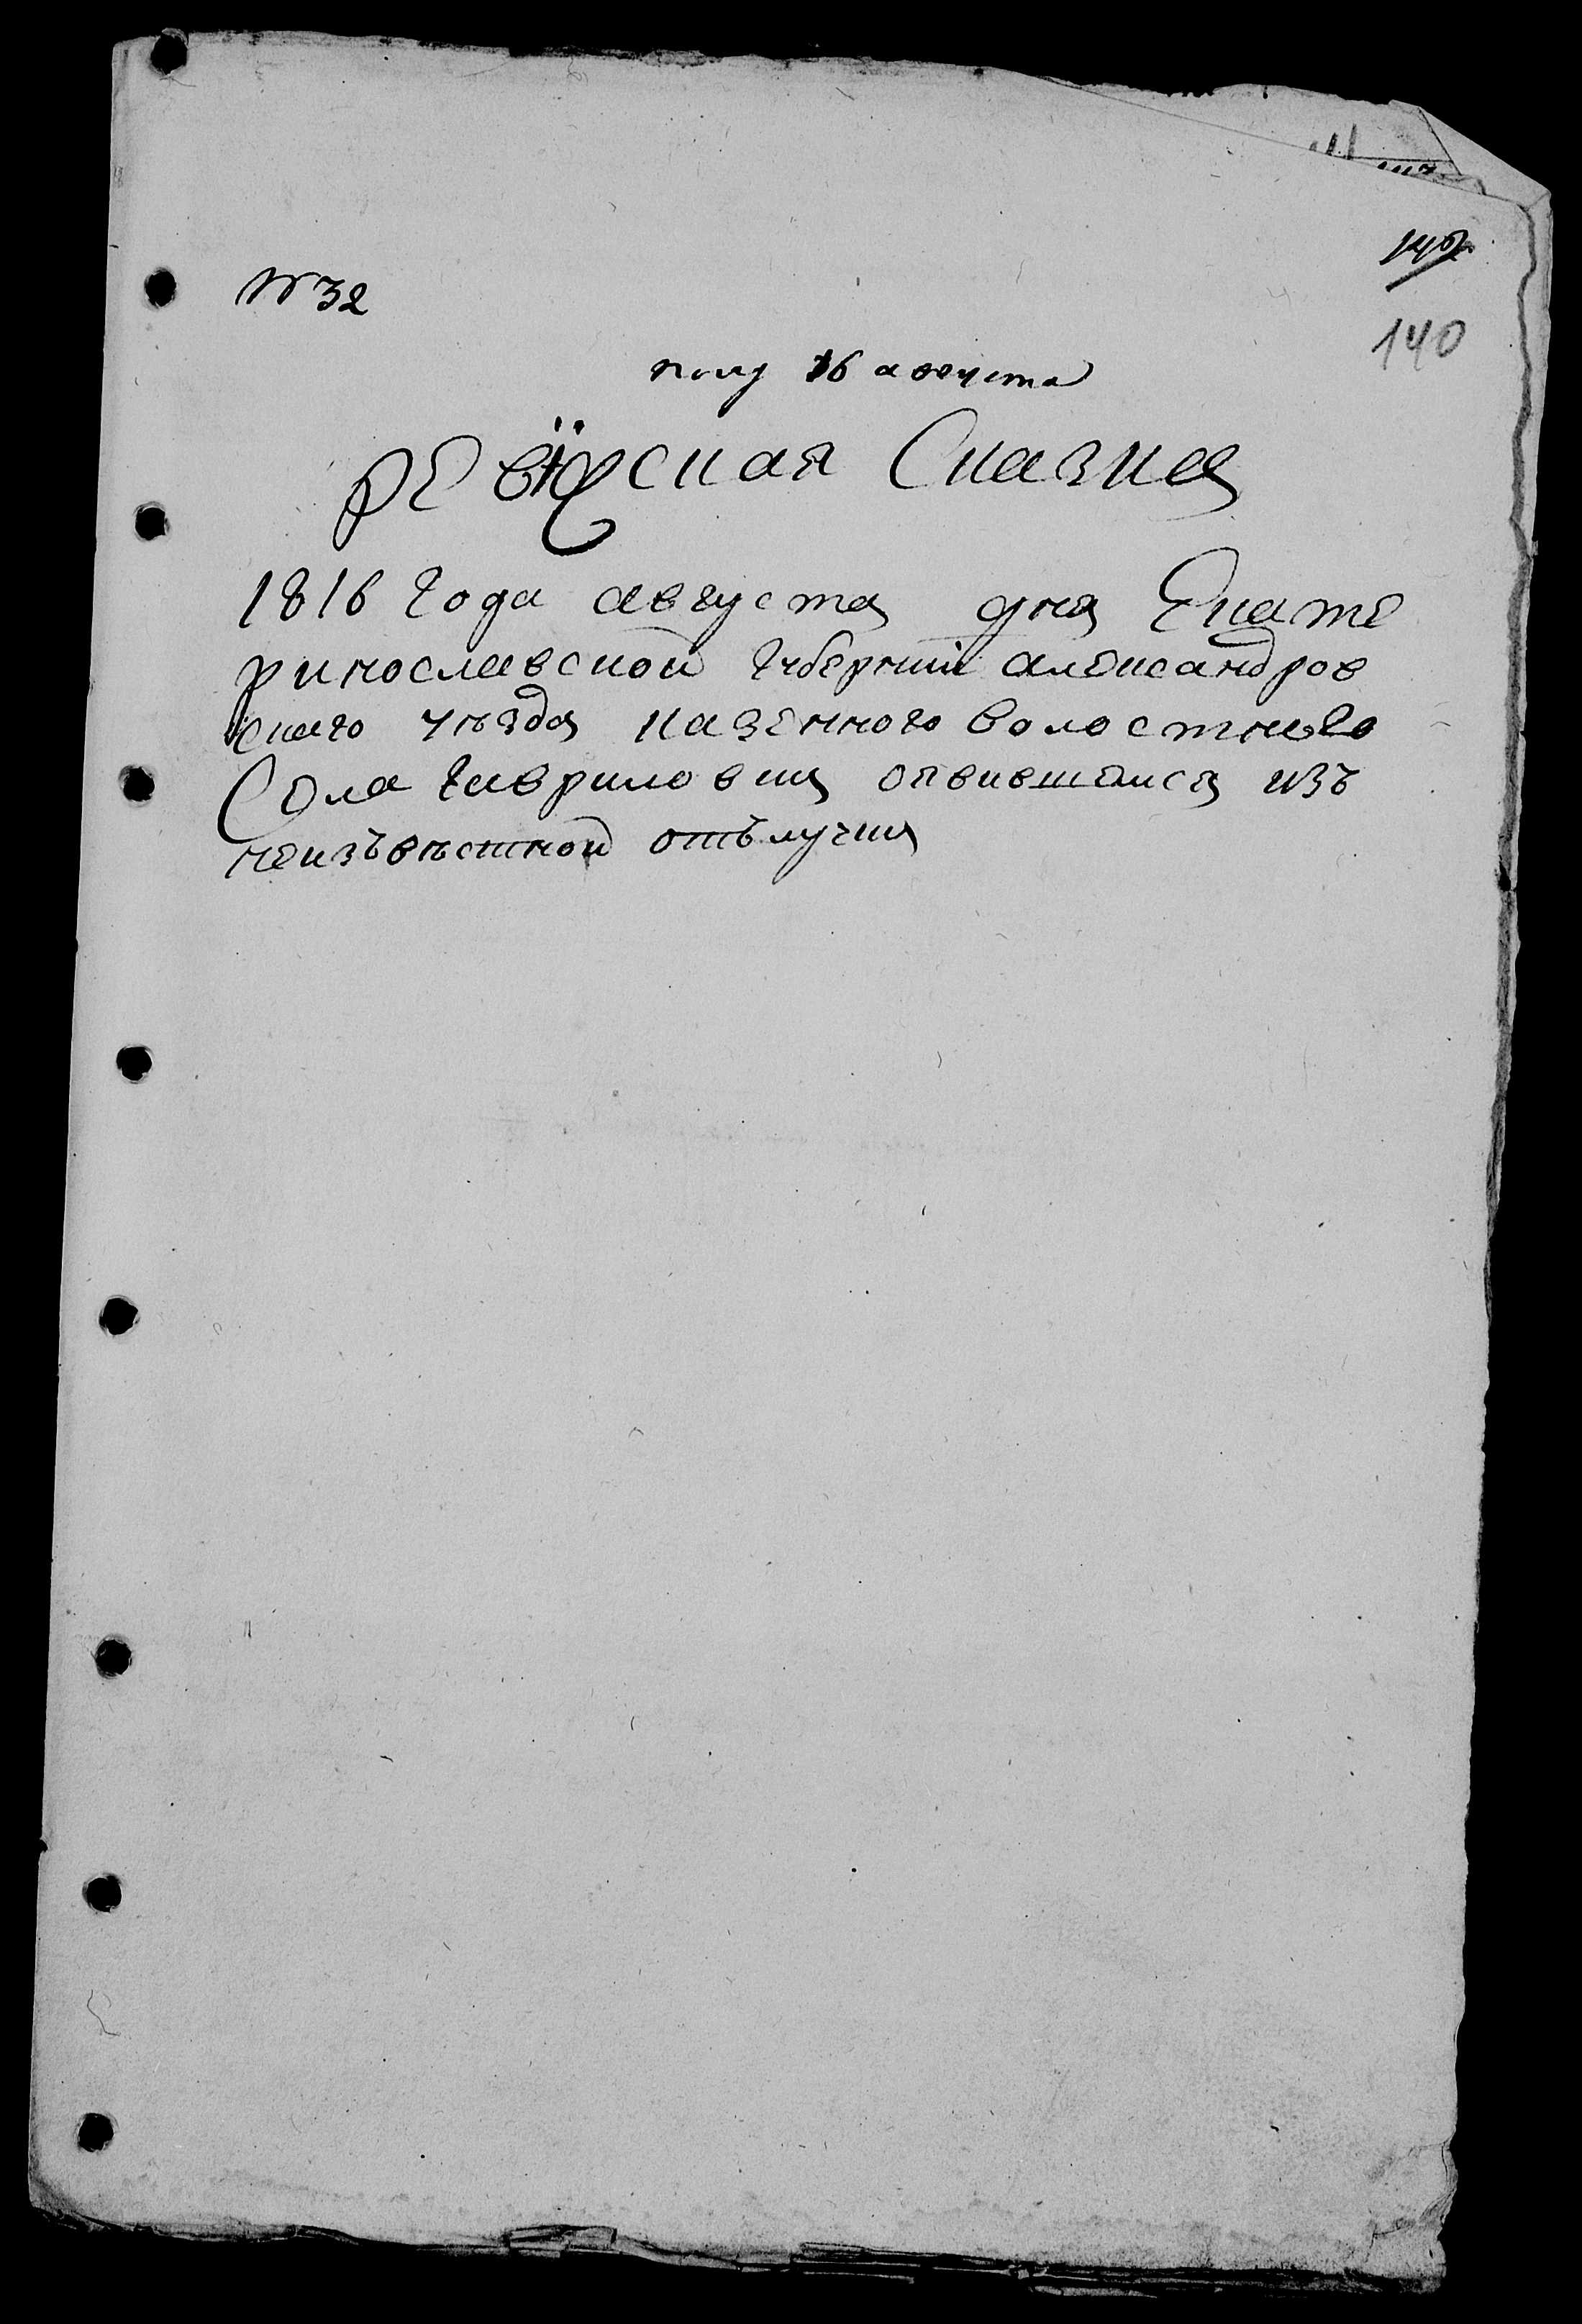 140
№ 32
полу 16 августа
Ревїжская Сказка
1816 года августа дня Екате
ринославской губернїи александров
скаго уѣзда казенного волостного
Села гавриловки оявившемся изъ
неизъвѣстной отълучки